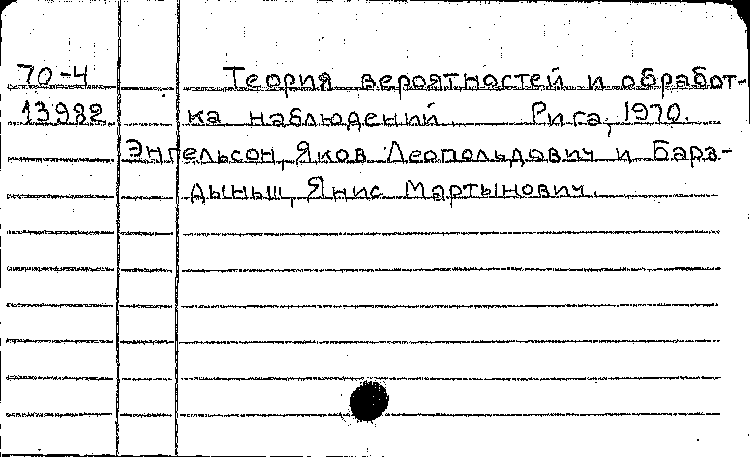 70-4 Теория вероятностей и обработ-
13982 ка наблюдений. Рига, 1970.
Энгельсон, Яков Леопольдович и Барз-
дыньш, Янис Мартынович.